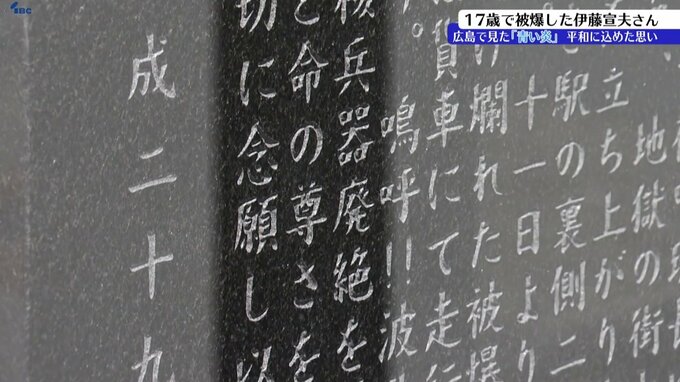 IBC
17歳で被爆した伊藤宣夫さん
広島で見た「青い炎」 平和に込めた思い
地獄の街
立ち上がり
駅の裏側二
十一日より
け爛れた被爆
貨車にて走行
。嗚呼!!波
核兵器廃絶を
と命の尊さを
切に念願し以
成二十九